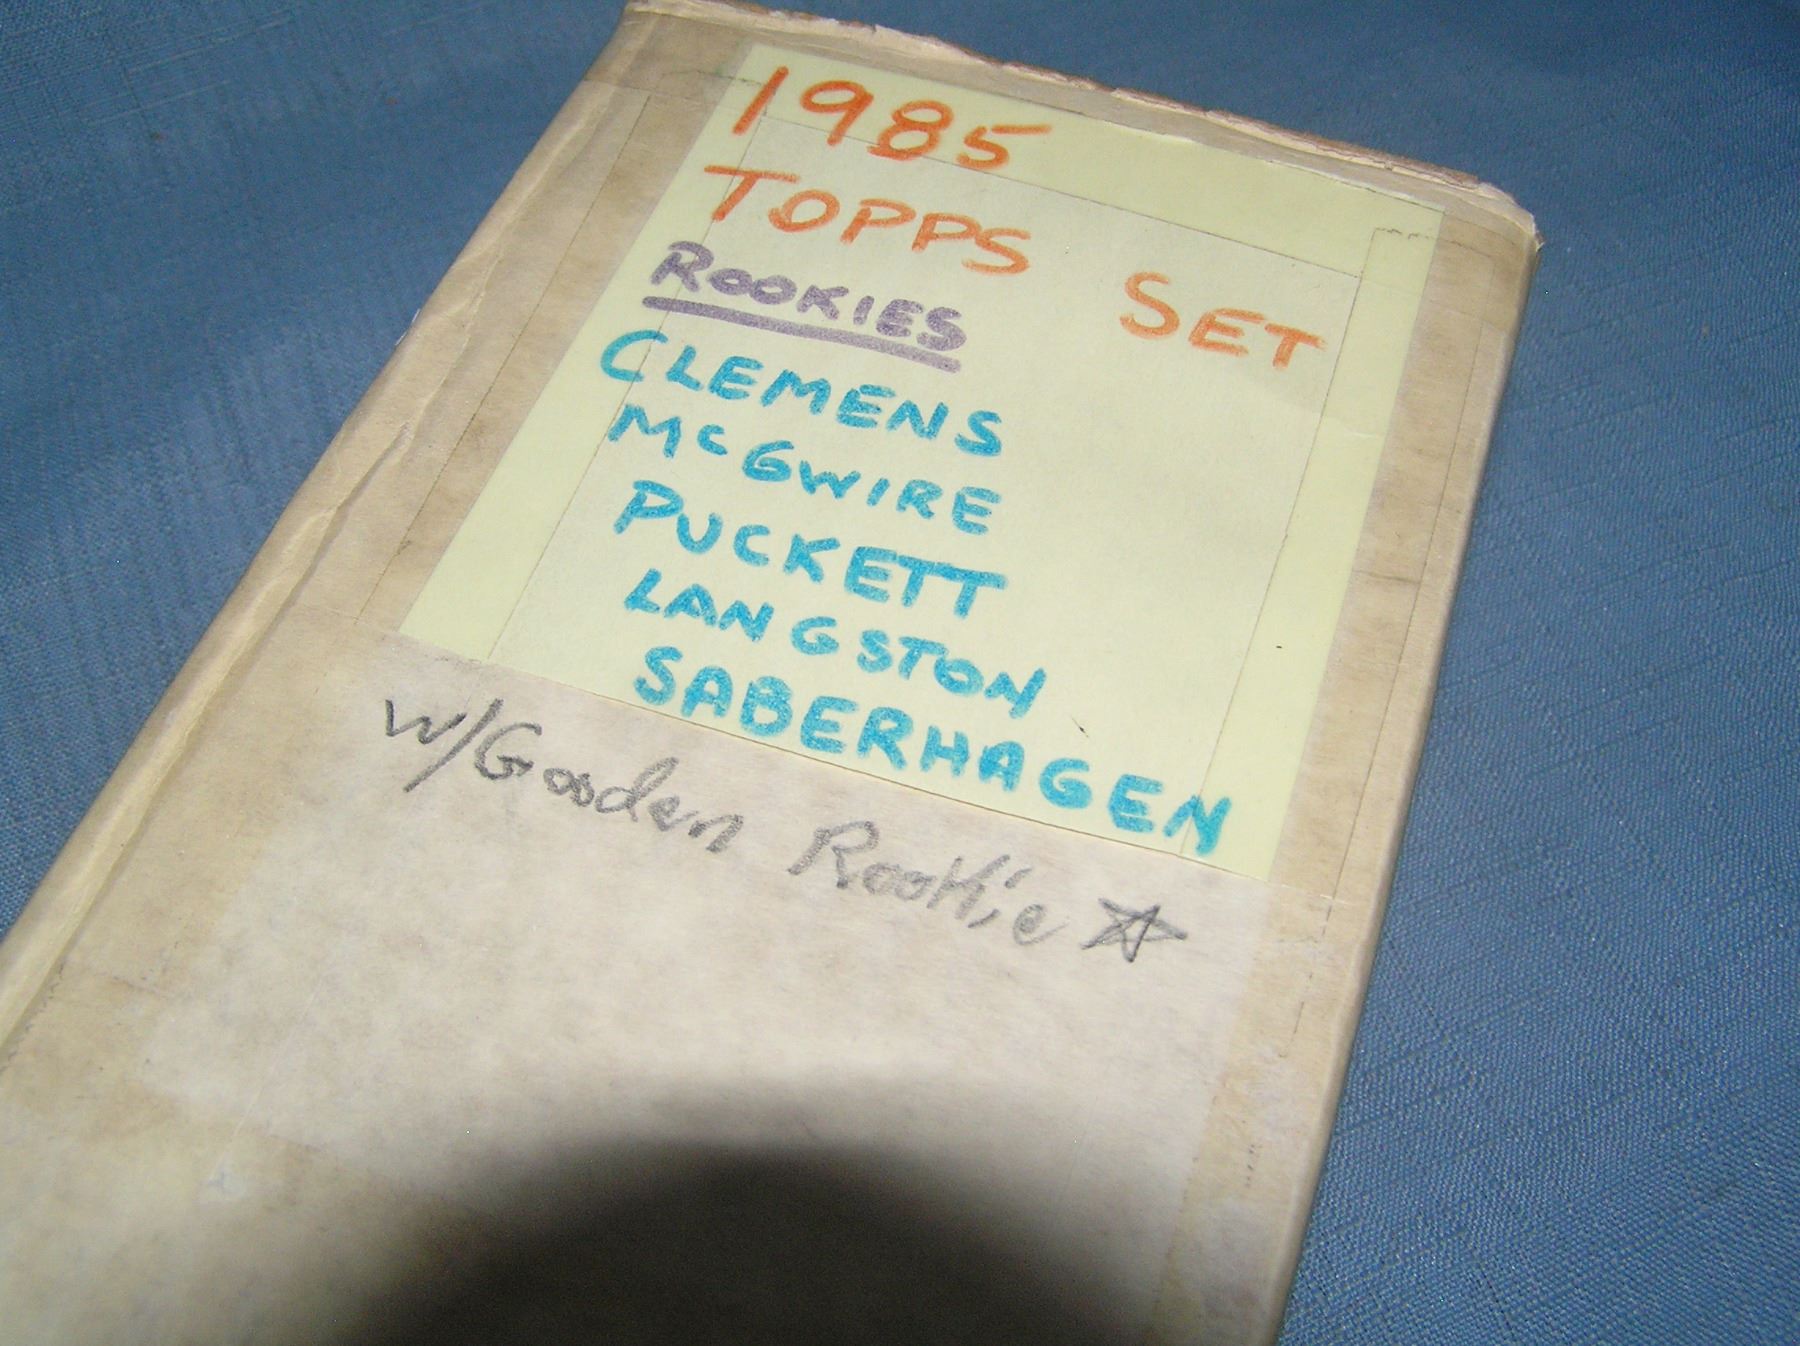 1985
TOPPS SET
ROOKIES
CLEMENS
McGWIRE
PUCKETT
LANGSTON
SABERHAGEN
w/Gooden Rookie ☆